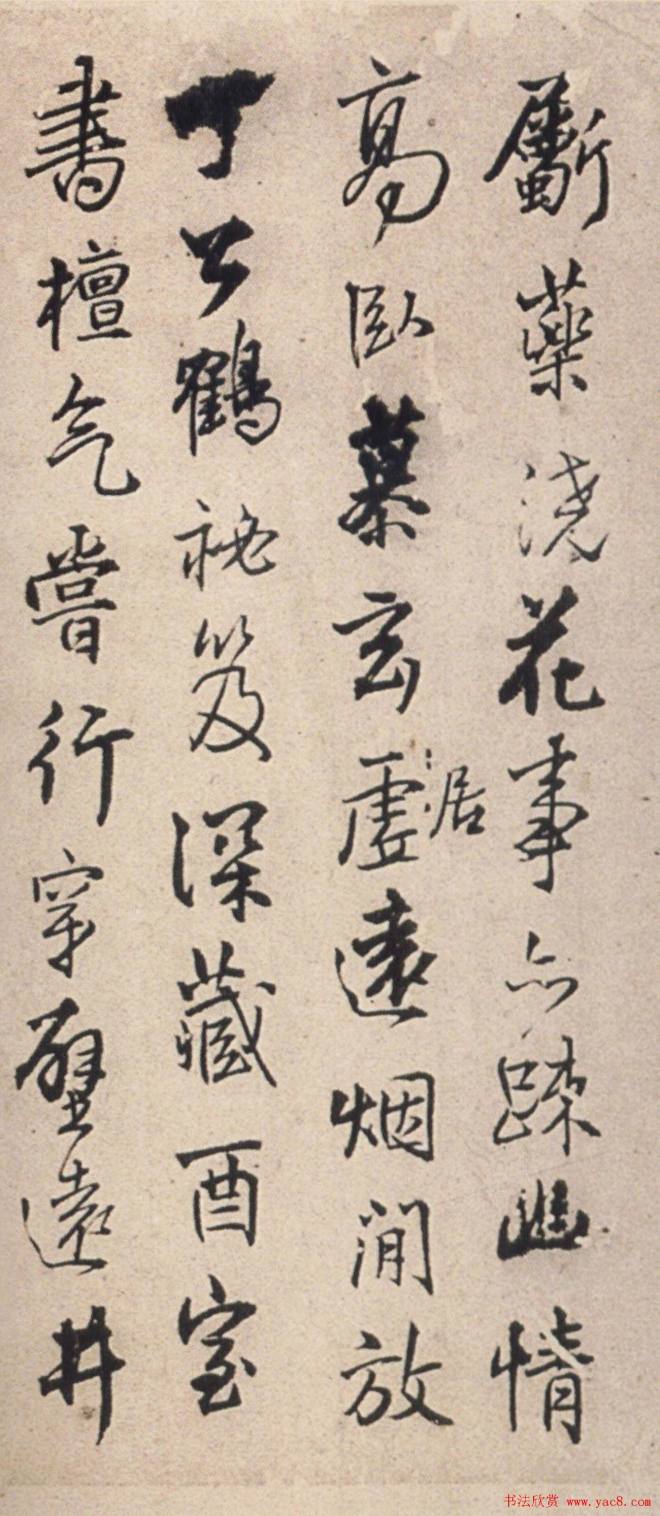 斸藥澆花事亦疎幽情
高臥慕玄虛居遠烟澗放
丁公鶴祕笈深藏酉室
書檀气嘗行穿壁遠井
书法欣赏 www.yac8.com